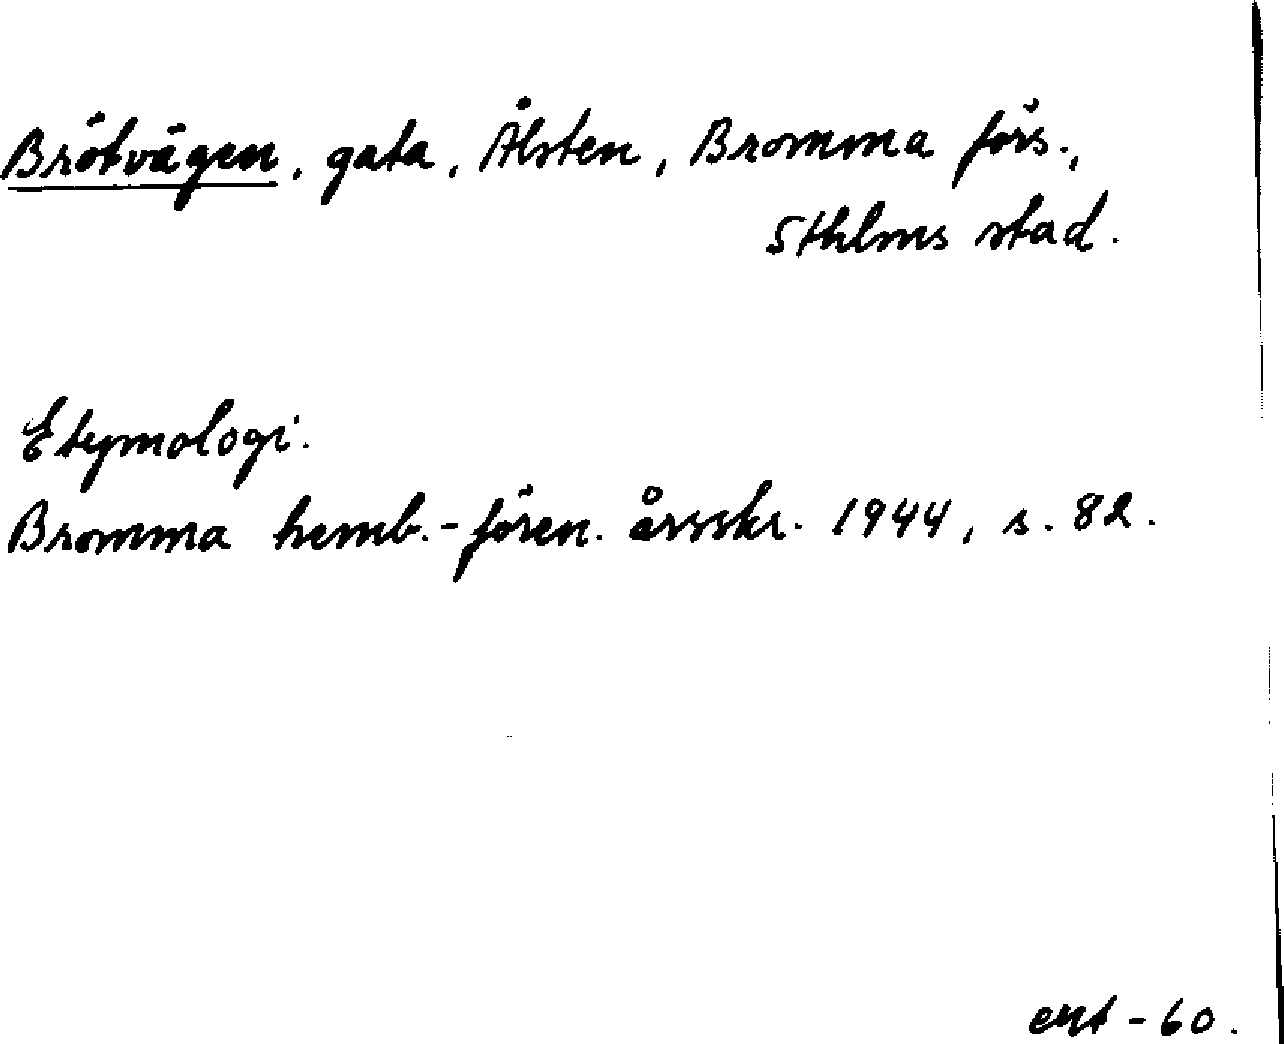 Brötvägen, gata, Ålsten, Bromma förs.,
Sthlms stad.
Etymologi.
Bromma hemb.-fören. årsskr. 1944, s. 82.
ext - 60.